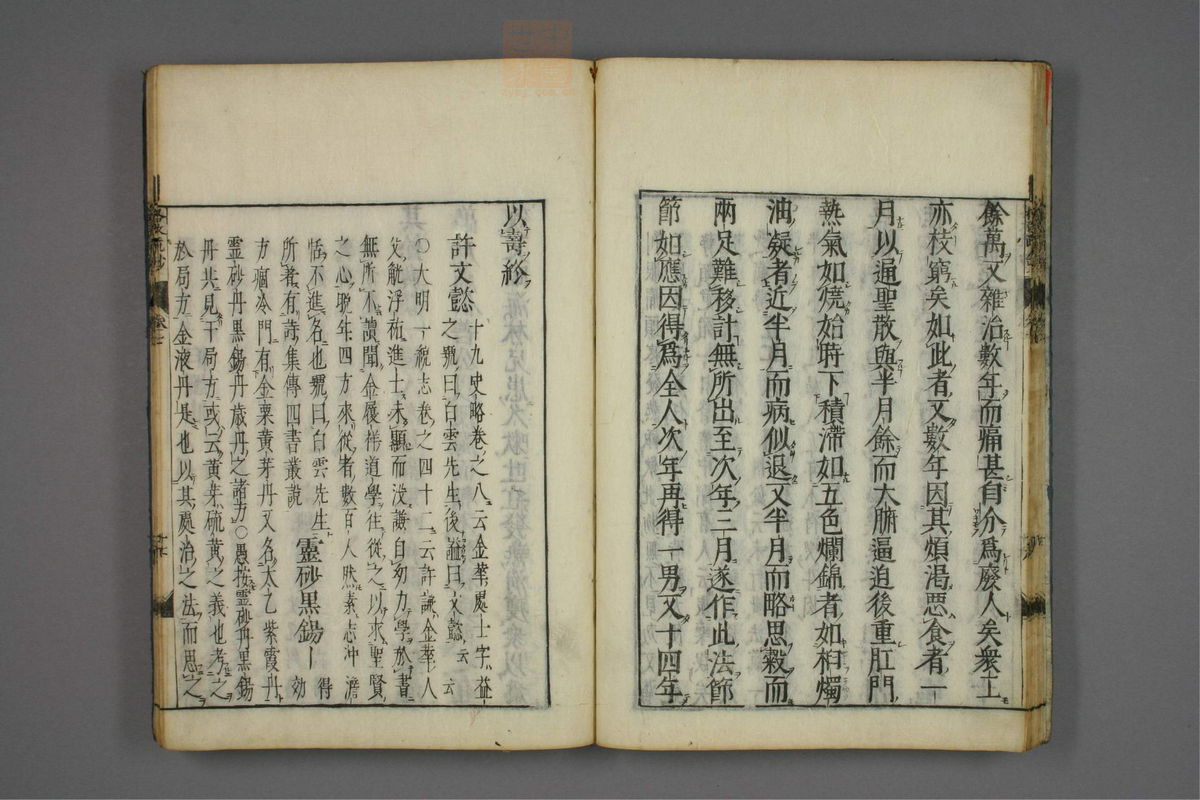 餘萬又雜治數年而痛甚自分爲廢人矣衆工
亦枝窮矣如此者又數年因其煩渴惡食者一
月以通聖散與半月餘而大腑逼迫後重肛門
熱氣如燒始時下積滯如五色爛錦者如桕燭
油凝者近半月而病似退又半月而略思穀而
兩足難移計無所出至次年三月遂作此法節
節如應因得爲全人次年再得一男又十四年
以壽終
許文懿 十九史略卷之八云金華處士字益
之號曰白雲先生後謚曰文懿云云
〇大明一統志卷之四十二云許謙金華人
父觥浮祐進士未顯而没謙自幼力學於書
無所不讀聞金履祥道學往從之以求聖賢
之心晚年四方來從者數百人然素志冲澹
恬不進名也號曰白雲先生
所著有詩集傳四書叢說 靈砂黒錫 得效
方痼冷門有金粟黄芽丹又名太乙紫霞丹
靈砂丹黒錫丹歳丹之諸方〇愚按靈砂丹黒錫
丹共見于局方或云黄芽硫黄之義也考之
於局方金液丹是也以其處治之法而思之